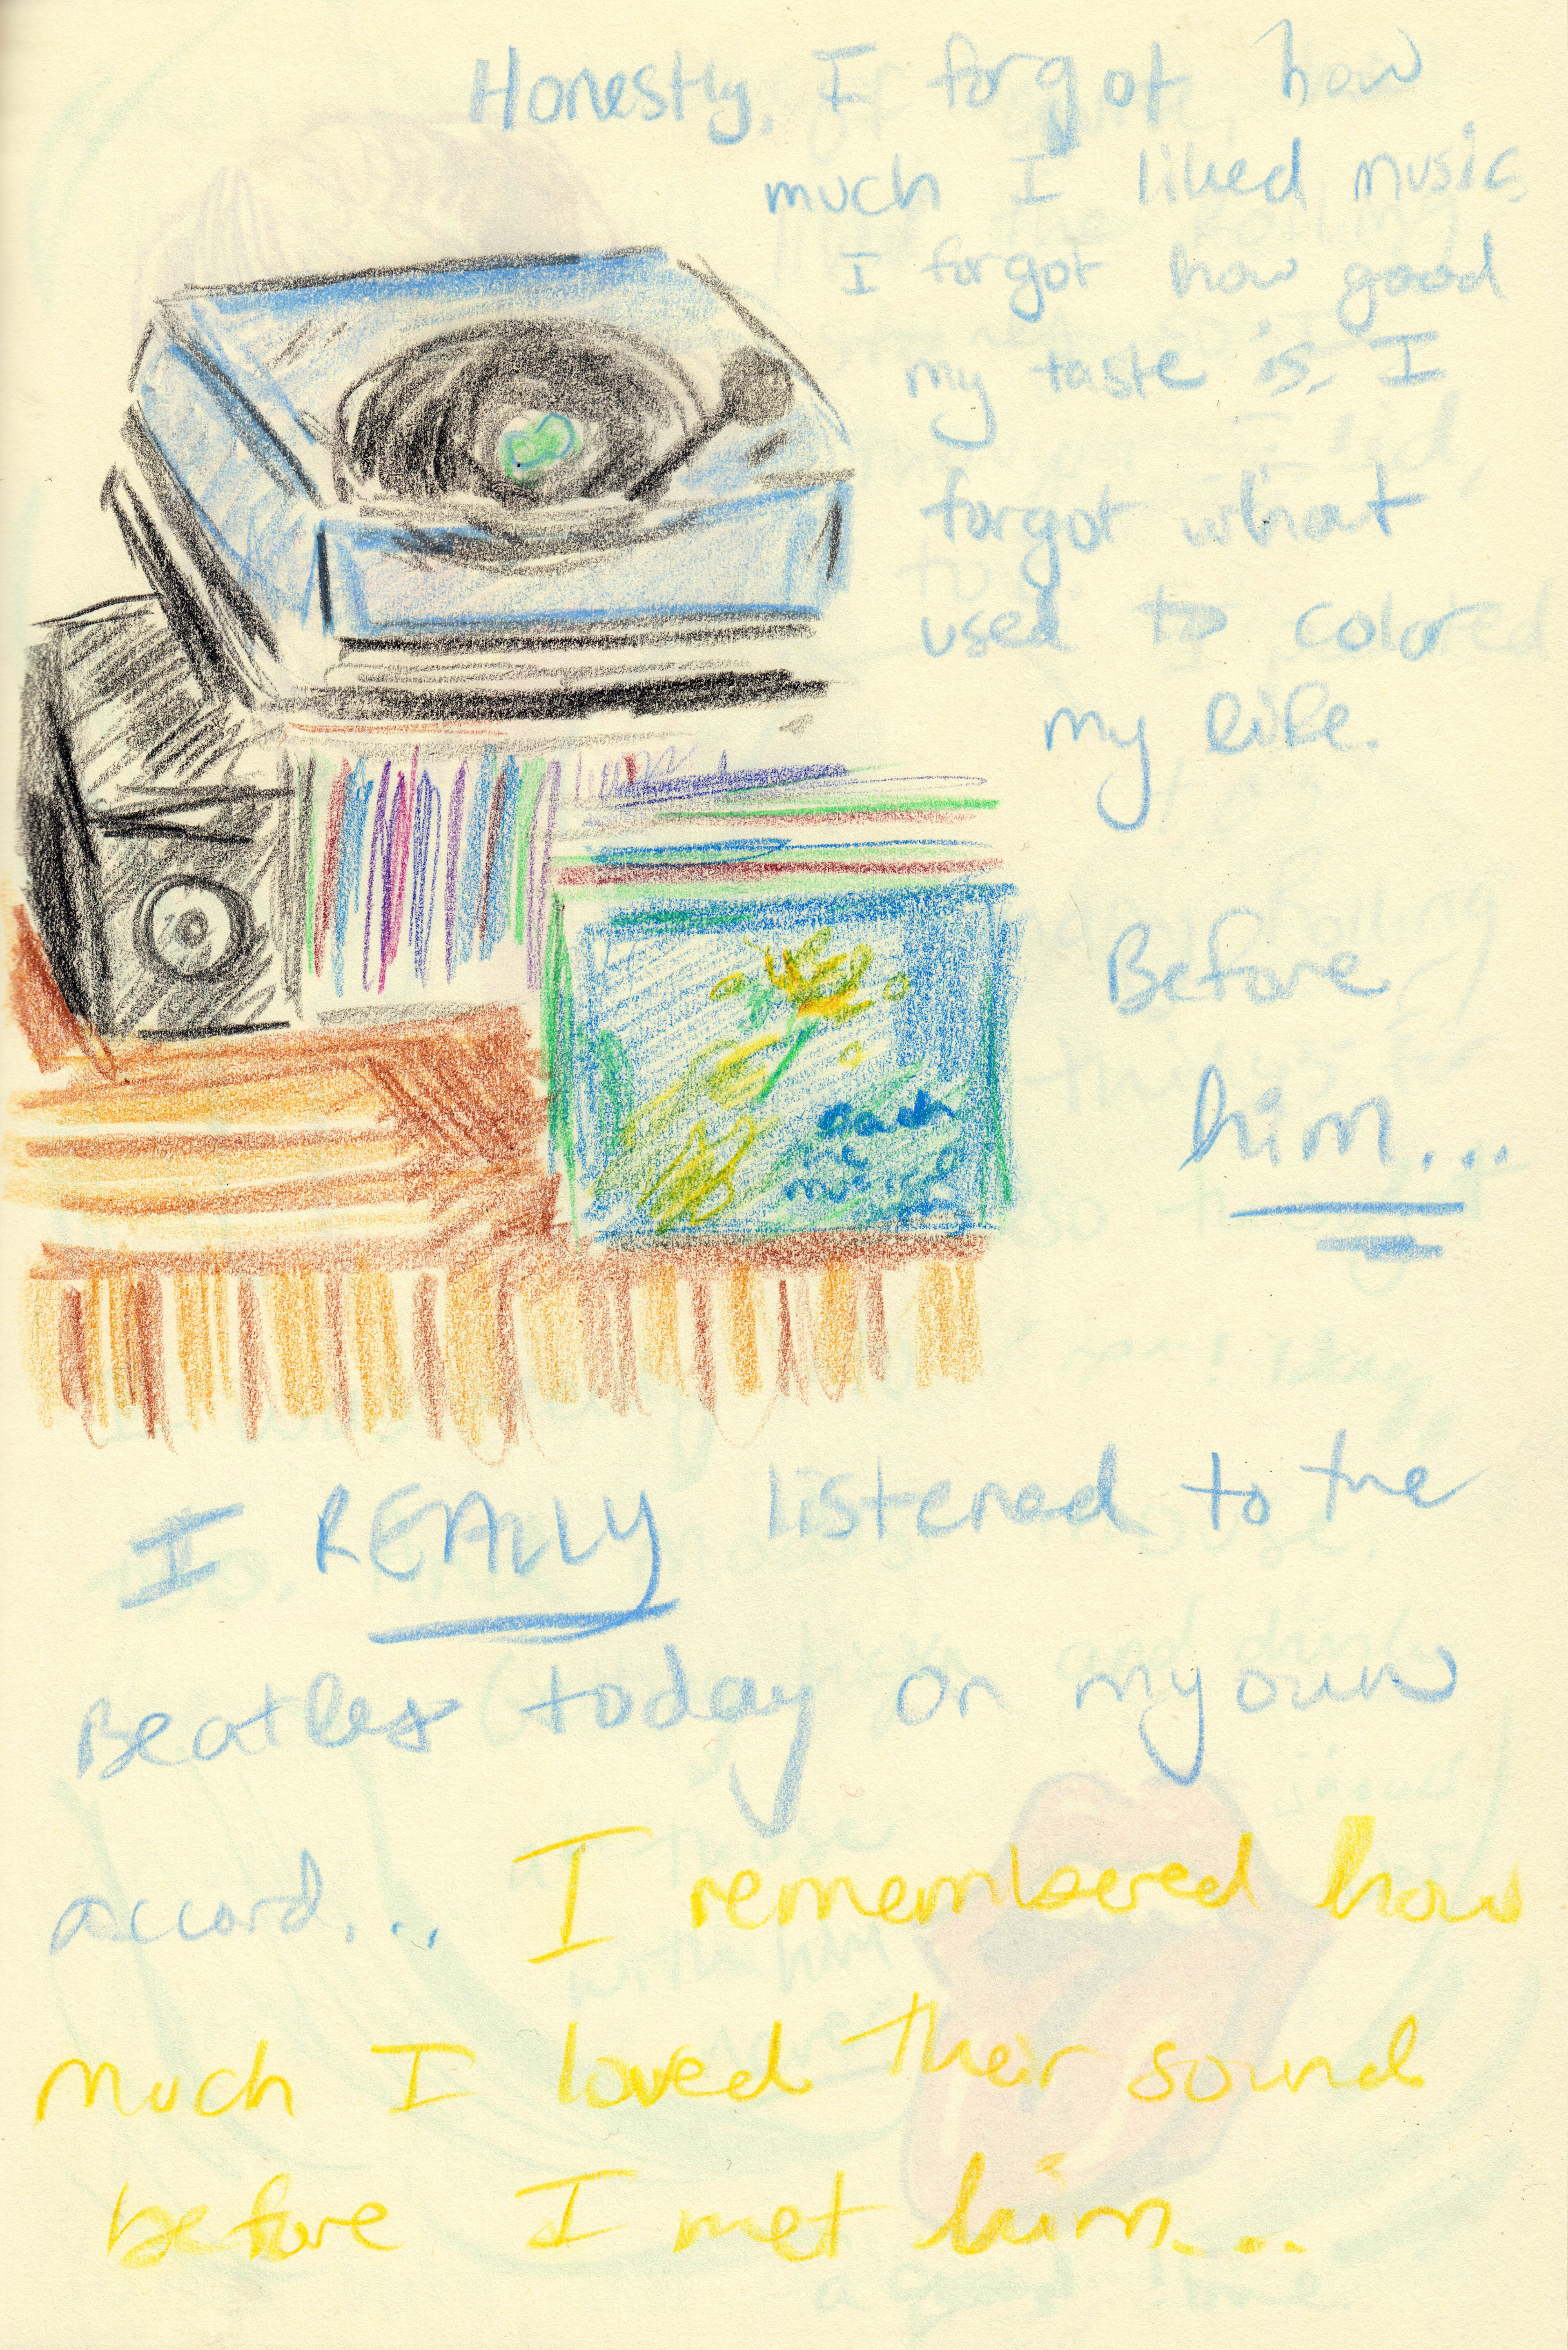 Honestly, I forgot how
much I liked music.
I forgot how good
my taste is. I
forgot what
used to colored
my life.
Before
him...
music
I REALLY listened to the
Beatles today on my own
accord... I remembered how
much I loved their sound
before I met him...